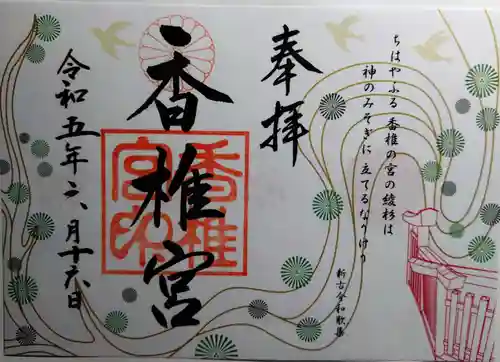 ちはやふる 香椎の宮の綾杉は
神のみそぎに 立てるなりけり
新古今和歌集
奉拝
香椎宮
香椎
宮印
令和五年六月十六日